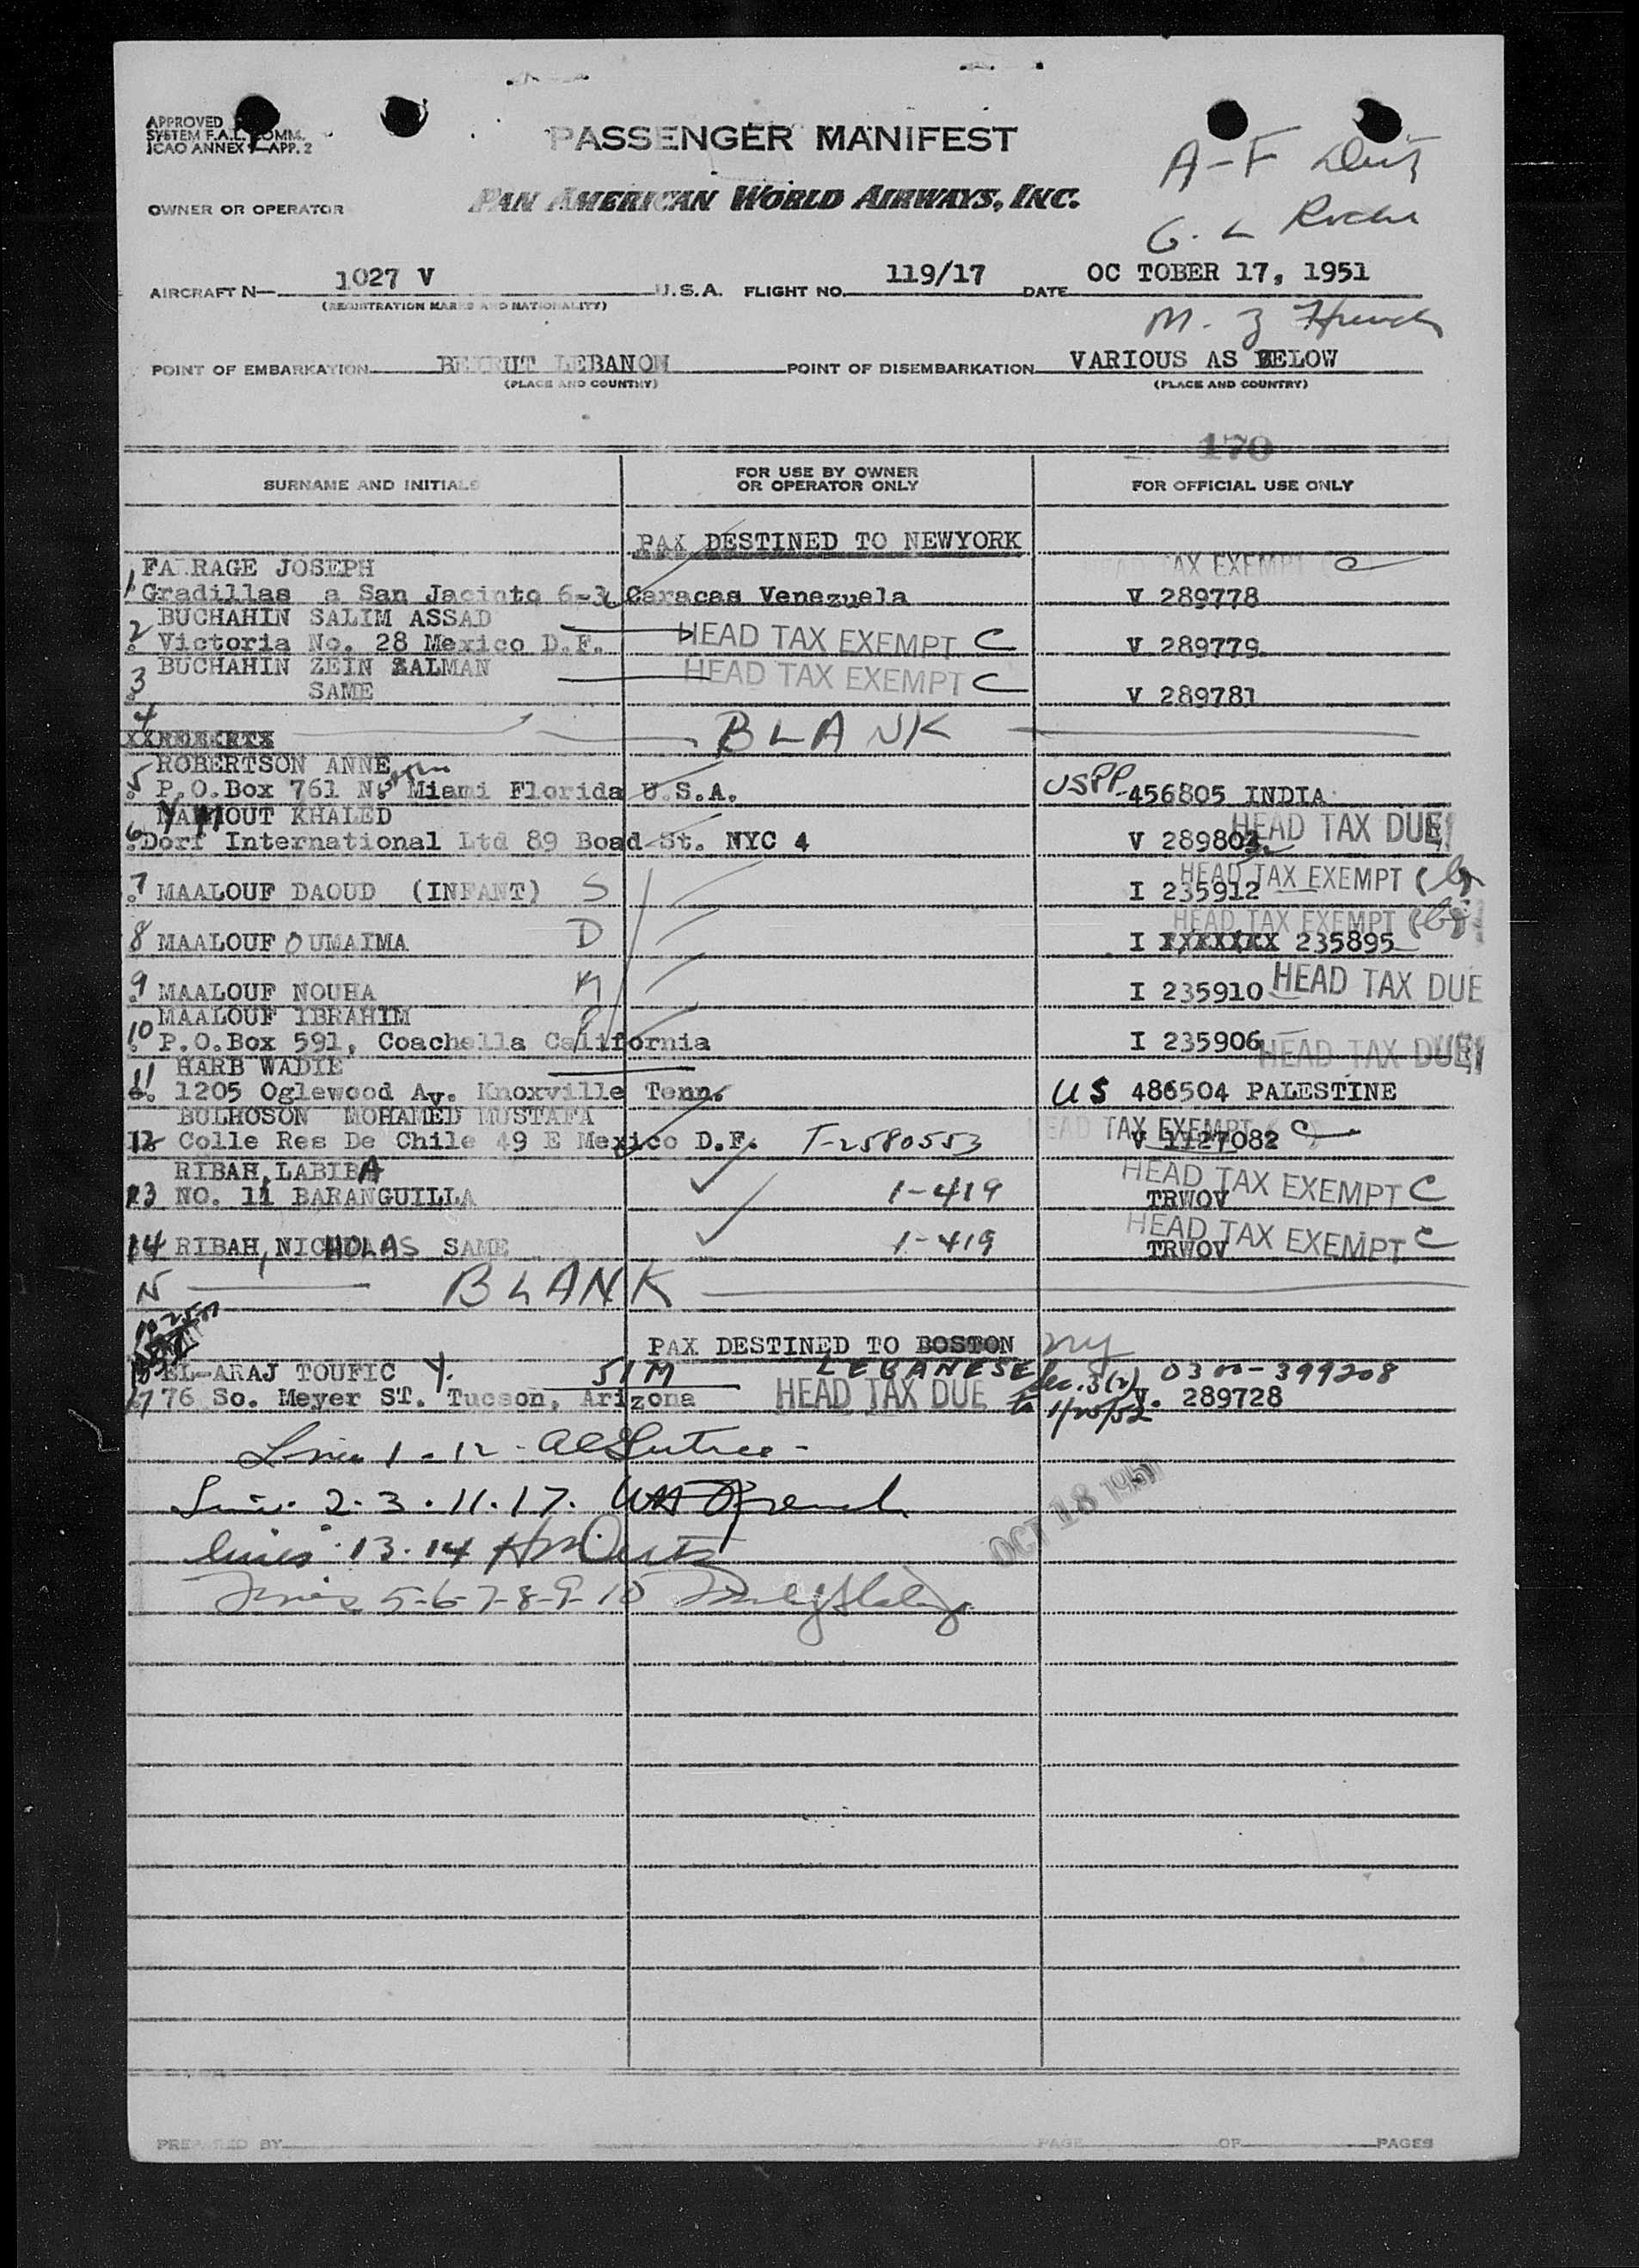 APPROVED
SYSTEM F.A.L. COMM.
ICAO ANNEX 9 APP. 2
PASSENGER MANIFEST
A-F
OWNER OR OPERATOR PAN AMERICAN WORLD AIRWAYS, INC.
G. L Roche
AIRCRAFT N— 1027 V U.S.A. FLIGHT NO. 119/17 DATE OC TOBER 17, 1951
(REGISTRATION MARKS AND NATIONALITY)
M. J
POINT OF EMBARKATION BEIRUT LEBANON POINT OF DISEMBARKATION VARIOUS AS BELOW
(PLACE AND COUNTRY) (PLACE AND COUNTRY)
170
SURNAME AND INITIALS FOR USE BY OWNER OR OPERATOR ONLY FOR OFFICIAL USE ONLY
PAX DESTINED TO NEWYORK
FA RAGE JOSEPH HEAD TAX EXEMPT C
1 Gradillas a San Jacinto 6-3 Caracas Venezuela V 289778
BUCHAHIN SALIM ASSAD
2 Victoria No. 28 Mexico D.F. HEAD TAX EXEMPT C V 289779
BUCHAHIN ZEIN SALMAN HEAD TAX EXEMPT C
3 SAME V 289781
4 BLANK
ROBERTSON ANNE
5 P.O.Box 761 No Miami Florida U.S.A. USPP 456805 INDIA
YAMOUT KHALED HEAD TAX DUE
6 Dorf International Ltd 89 Boad St. NYC 4 V 289803
HEAD TAX EXEMPT (b)
7 MAALOUF DAOUD (INFANT) S I 235912
HEAD TAX EXEMPT (b)
8 MAALOUF OUMAIMA D I XXXXXXX 235895
9 MAALOUF NOUHA M I 235910 HEAD TAX DUE
MAALOUF IBRAHIM
10 P.O.Box 591, Coachella California I 235906 HEAD TAX DUE
HARB WADIE
11 1205 Oglewood Av. Knoxville Tenn. US 486504 PALESTINE
BULHOSON MOHAMED MUSTAFA HEAD TAX EXEMPT C
12 Colle Res De Chile 49 E Mexico D.F. T-2580553 V 1127082
RIBAH, LABIBA HEAD TAX EXEMPT C
13 NO. 11 BARANGUILLA 1-419 TRWOV
HEAD TAX EXEMPT C
14 RIBAH, NICHOLAS SAME 1-419 TRWOV
BLANK
PAX DESTINED TO BOSTON NY
EL-ARAJ TOUFIC Y. 51M LEBANESE Sec. 3(2) 0300-399208
17 76 So. Meyer ST. Tucson, Arizona HEAD TAX DUE to 1/20/52 V. 289728
Lines 1-12
Lines 2.3.11.17.
OCT 18 1951
lines 13.14
Lines 5-6-7-8-9-10
PREPARED BY PAGE OF PAGES